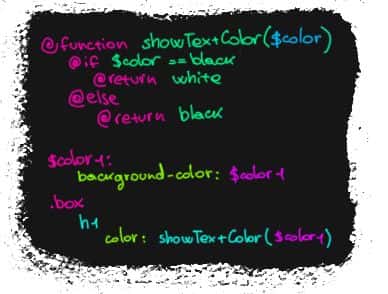 @function showTextColor($color)
@if $color == black
@return white
@else
@return black
$color1:
background-color: $color1
.box
h1
color: showTextColor($color1)